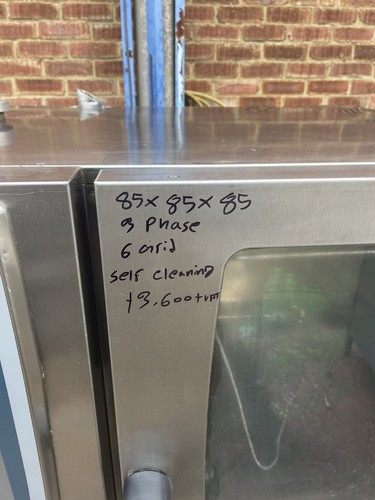 85x 85x 85
3 Phase
6 Grid
self cleaning
£3.600+VAT